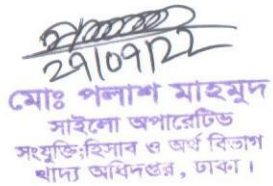 29/09/22
মোঃ পলাশ মাহমুদ
সাইলো অপারেটিভ
সংযুক্তি;হিসাব ও অর্থ বিভাগ
খাদ্য অধিদপ্তর, ঢাকা।